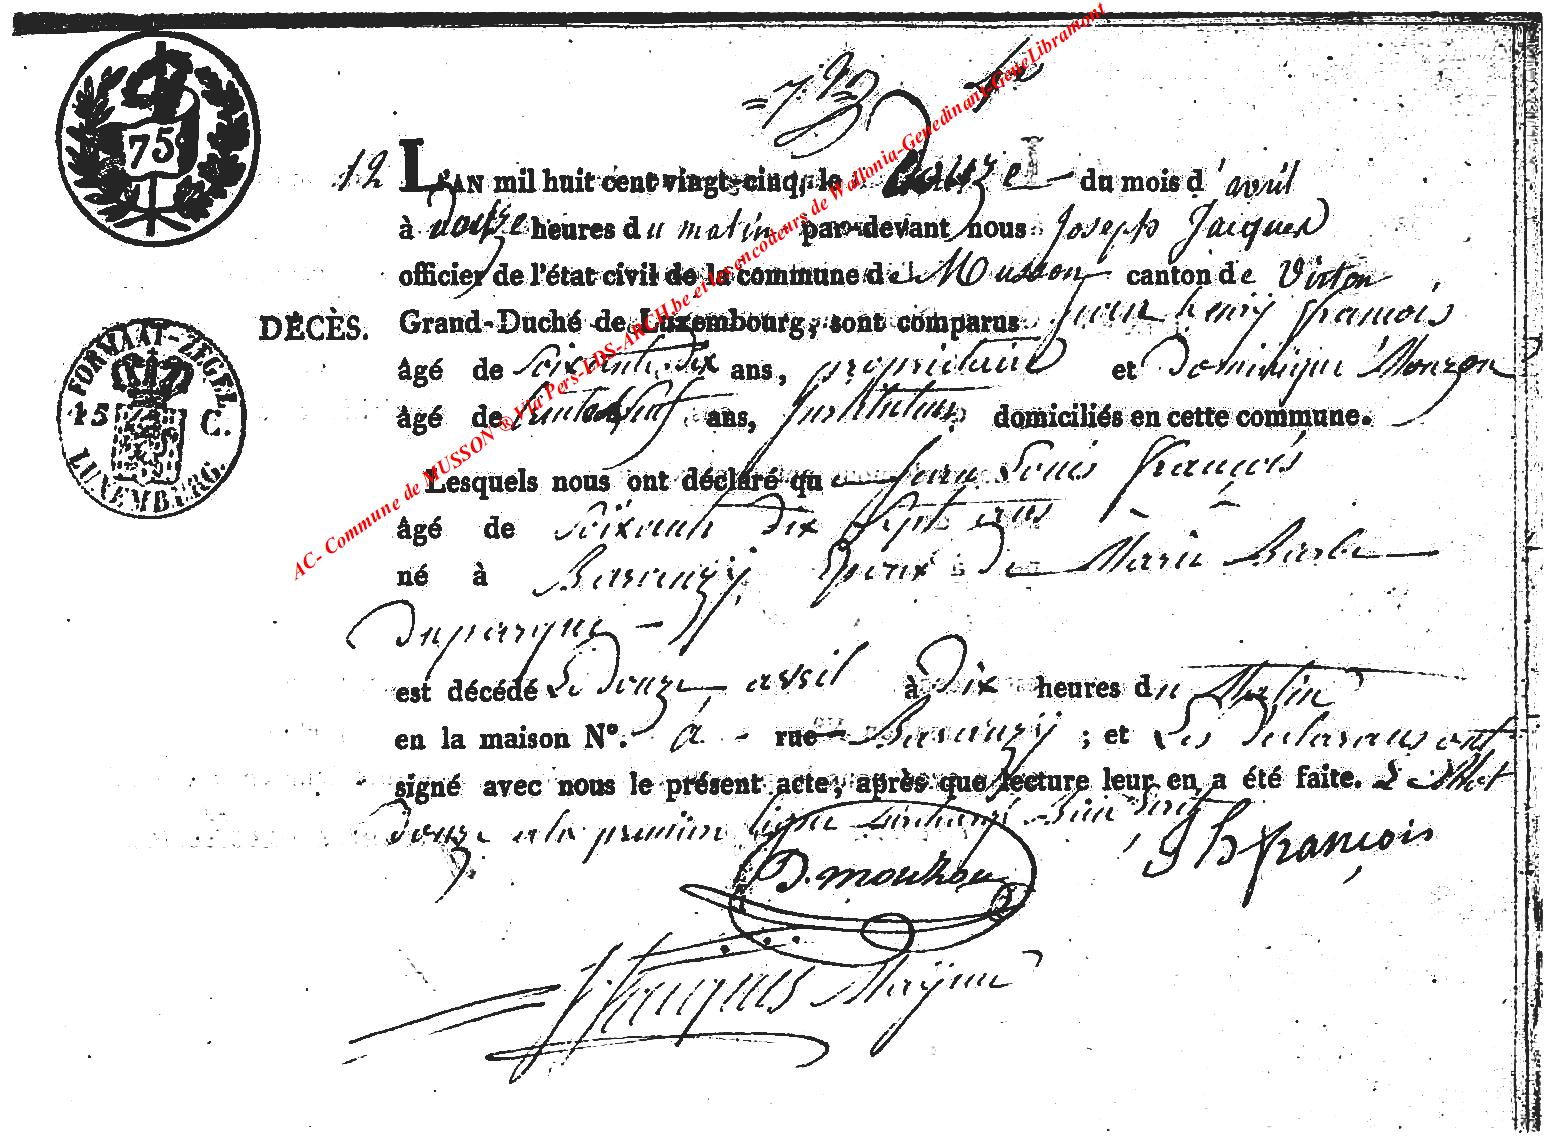 75c
12 L'AN mil huit cent vingt-cinq, le douze du mois d'avril
à douze heures du matin par-devant nous Joseph Jacques
officier de l'état civil de la commune de Musson canton de Virton
DÉCÈS. Grand-Duché de Luxembourg, sont comparus jean henry françois
âgé de Soixante dix ans, propriétaire et Dominique Mouzon
âgé de ans, Instituteur domiciliés en cette commune.
FORMAAT-ZEGEL
15 C.
LUXEMBURG.
Lesquels nous ont déclaré que Jean Louis françois
âgé de Soixante dix Sept ans
né à Baranzy, Epoux de Marie Barbe
Duparque
est décédé Le douze avril à Dix heures du Matin
en la maison N°. à rue Baranzy ; et Les Declarans ont
signé avec nous le présent acte, après que lecture leur en a été faite. Le Mot
douze a la premiere ligne surchargé Bien
D. mouzon
J h françois
J Jacques
AC- Commune de MUSSON ® Via Pers-LDS-ARCH.be et les encodeurs de Wallonia-Genedinant-GeneLibramont